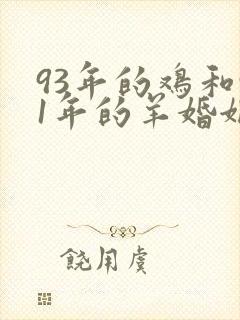 93年的鸡和
1年的羊婚
饶用虞